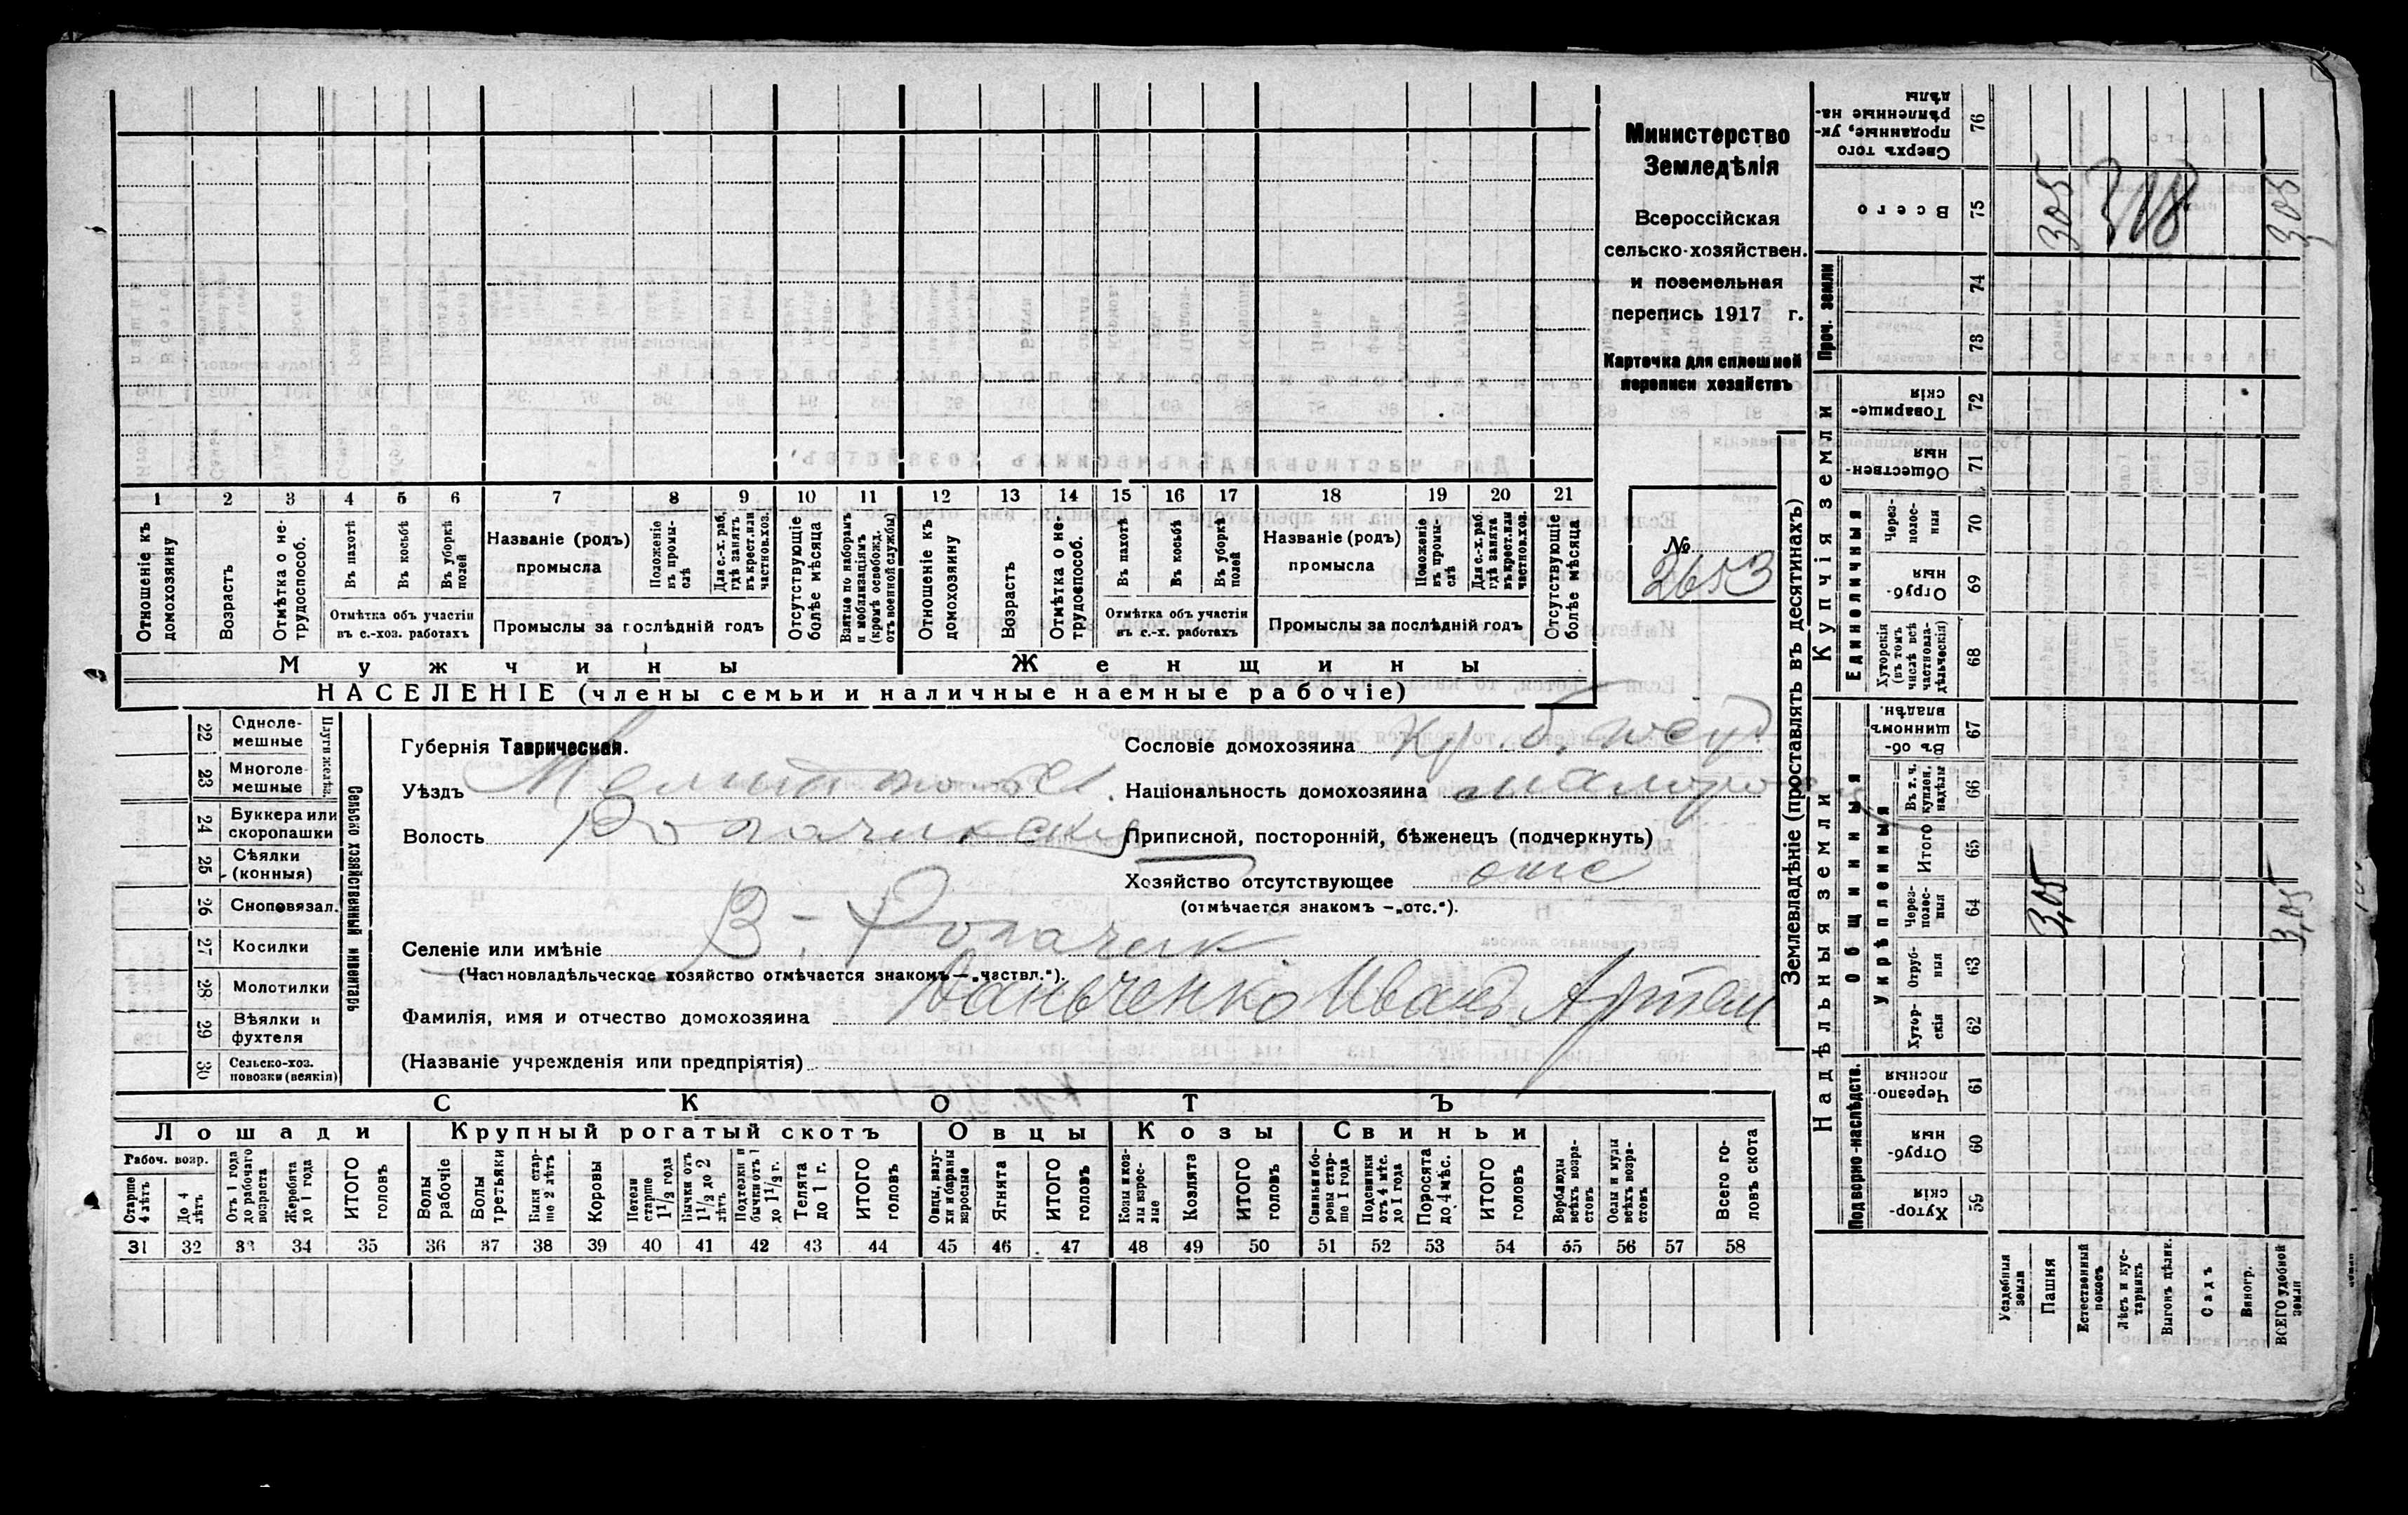 Министерство
Земледѣлія
Всероссійская
сельско-хозяйствен.
и поземельная
перепись 1917 г.
Карточка для сплошной
переписи хозяйствъ
№
2653
1 2 3 4 5 6 7 8 9 10 11 12 13 14 15 16 17 18 19 20 21
Отношеніе къ домохозяину
Возрастъ
Отмѣтка о не-трудоспособ.
Въ пахотѣ
Въ косьбѣ
Въ уборкѣ полей
Отмѣтка объ участіи въ с.-хоз. работахъ
Названіе (родъ) промысла
Положеніе въ промы-слѣ
Для с.-х. раб. гдѣ занятъ въ крест. или частнов. хоз.
Промыслы за послѣдній годъ
Отсутствующіе болѣе мѣсяца
Взятые по наборамъ и мобилизаціямъ (кромѣ освобожд. отъ военной службы)
Отношеніе къ домохозяину
Возрастъ
Отмѣтка о не-трудоспособ.
Въ пахотѣ
Въ косьбѣ
Въ уборкѣ полей
Отмѣтка объ участіи въ с.-х. работахъ
Названіе (родъ) промысла
Положеніе въ промы-слѣ
Для с.-х. раб. гдѣ занята въ крест. или частнов. хоз.
Промыслы за послѣдній годъ
Отсутствующіе болѣе мѣсяца
Мужчины
Женщины
НАСЕЛЕНІЕ (члены семьи и наличные наемные рабочіе)
22 Одноле-мешные
23 Многоле-мешные
Плуги желѣз.
24 Буккера или скоропашки
25 Сѣялки (конныя)
26 Сноповязал.
27 Косилки
28 Молотилки
29 Вѣялки и фухтеля
30 Сельско-хоз. повозки (всякія)
Сельско хозяйственный инвентарь
Губернія Таврическая.
Уѣздъ
Волость Рогачикская
Сословіе домохозяина
Національность домохозяина малорос
Приписной, посторонній, бѣженецъ (подчеркнуть)
Хозяйство отсутствующее отс
(отмѣчается знакомъ — „отс.“).
Селеніе или имѣніе В. Рогачик
(Частновладѣльческое хозяйство отмѣчается знакомъ — „частвл.“).
Фамилія, имя и отчество домохозяина Ваньченко Иванъ Артем
(Названіе учрежденія или предпріятія)
СКОТЪ
Лошади
Крупный рогатый скотъ
Овцы
Козы
Свиньи
Рабоч. возр.
Старше 4 лѣтъ
До 4 лѣтъ
Отъ 1 года до рабочаго возраста
Жеребята до 1 года
ИТОГО головъ
Волы рабочіе
Волы третьяки
Быки стар-ше 2 лѣтъ
Коровы
Нетели старше 1 1/2 года
Бычки отъ 1 1/2 до 2 лѣтъ
Подтелки и бычки отъ 1 до 1 1/2 г.
Телята до 1 г.
ИТОГО головъ
Овцы, валу-хи и бараны взрослые
Ягнята
ИТОГО головъ
Козы и коз-лы взрос-лые
Козлята
ИТОГО головъ
Свиньи и бо-ровы стар-ше 1 года
Подсвинки отъ 4 мѣс. до 1 года
Поросята до 4 мѣс.
ИТОГО головъ
Верблюды всѣхъ возра-стовъ
Ослы и мулы всѣхъ возра-стовъ
Всего го-ловъ скота
31 32 33 34 35 36 37 38 39 40 41 42 43 44 45 46 47 48 49 50 51 52 53 54 55 56 57 58
Землевладѣніе (проставлять въ десятинахъ)
Надѣльныя земли
Купчія земли
Проч. земли
Подворно-наслѣдств.
Общинныя
Укрѣпленныя
Единоличныя
Сверхъ того проданные, ук-рѣпленные на-дѣлы 76
Всего 75 305 305
74
73
Товарище-скія 72
Обществен-ныя 71
Через-полос-ныя 70
Отруб-ныя 69
Хуторскія (въ томъ числѣ всѣ частновла-дѣльческія) 68
Въ об-щинномъ владѣн. 67
Въ т. ч. куплен. надѣлы 66
Итого 65
Через-полос-ныя 64 3,05 3,05
Отруб-ныя 63
Хутор-скія 62
Черезпо-лосныя 61
Отруб-ныя 60
Хутор-скія 59
Усадебныя земли
Пашня
Естественный покосъ
Лѣсъ и кус-тарникъ
Выгонъ дѣлик.
Садъ
Виногр.
ВСЕГО удобной земли